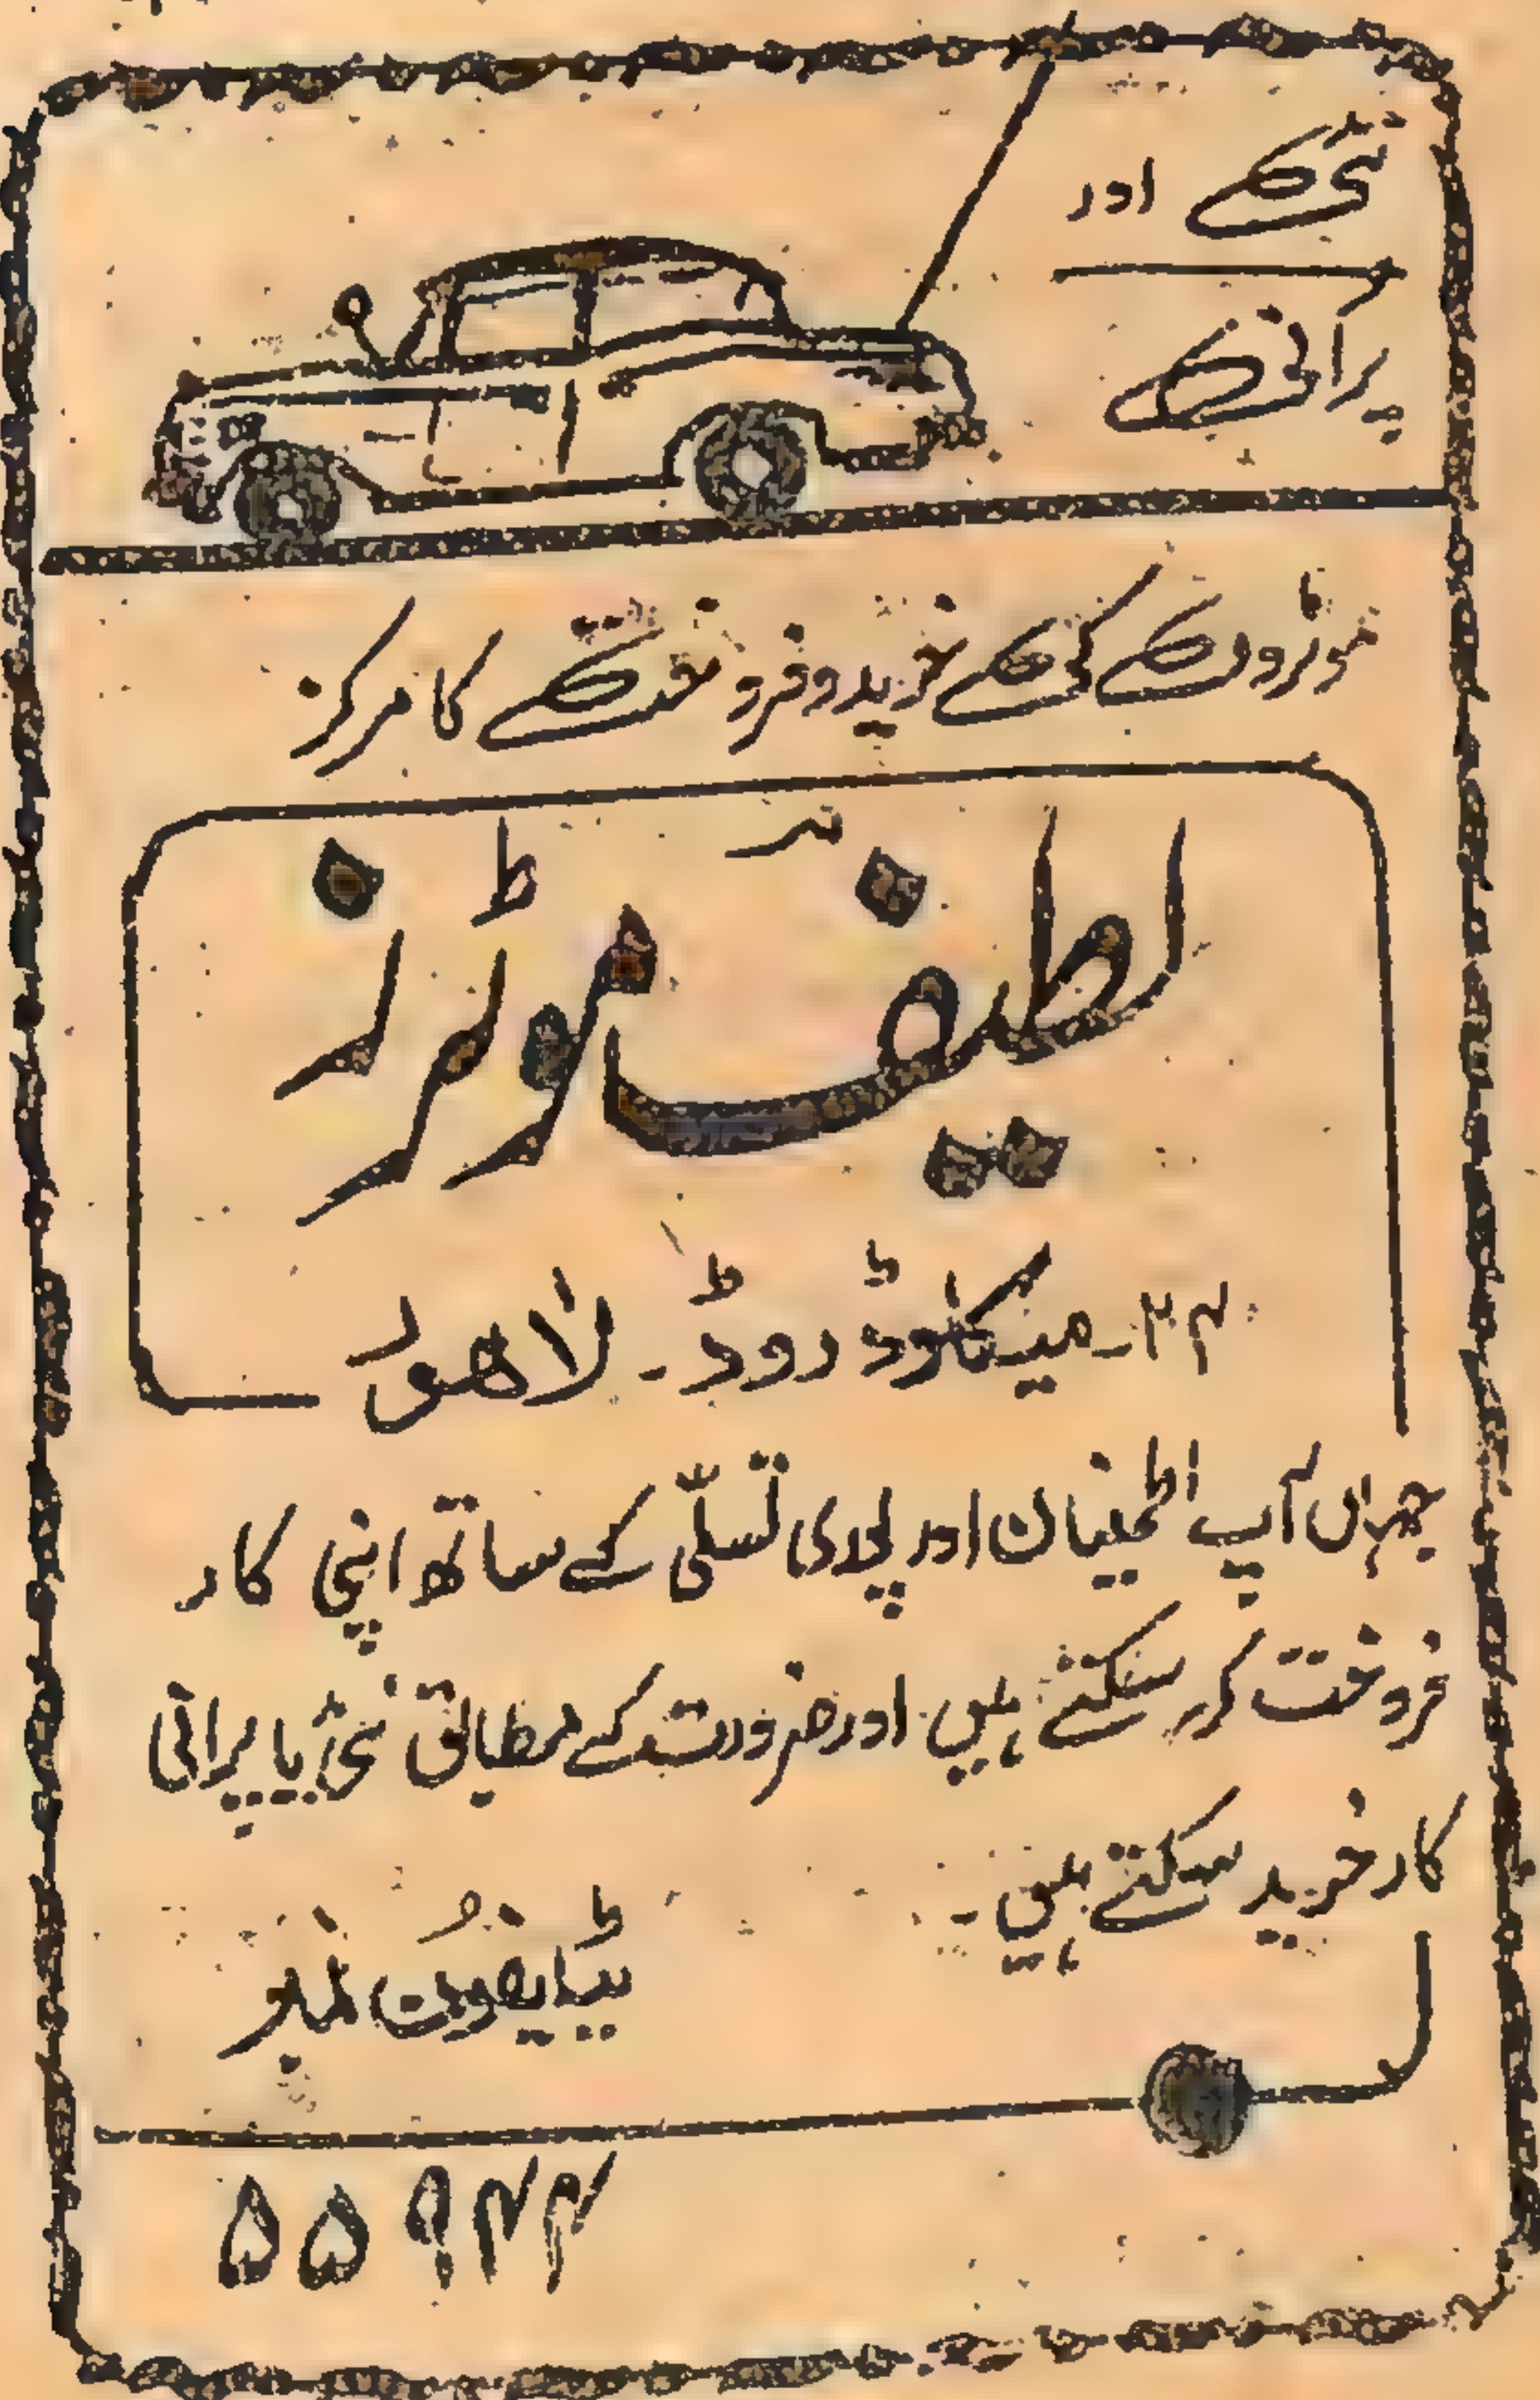 نئی اور
پرانی
موٹروں کی خرید و فروخت کا مرکز
لطیف موٹرز
۳۴۔ میکلوڈ روڈ۔ لاھور
جہاں آپ اطمینان اور پوری تسلّی کے ساتھ اپنی کار
فروخت کر سکتے ہیں اور ضرورت کے مطابق نئی یا پرانی
کار خرید سکتے ہیں۔
ٹیلیفون نمبر